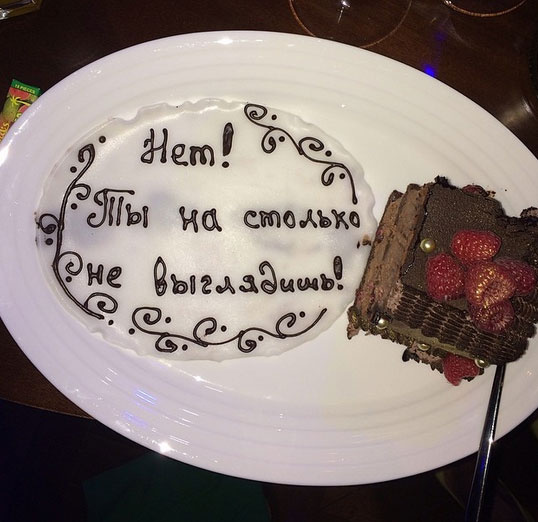 Нет!
Ты на столько
не выглядишь!